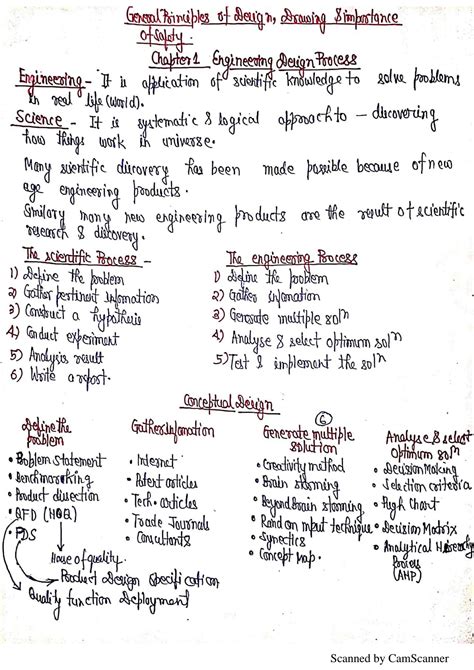 General Principles of Design, Drawing & importance
of safety.
Chapter 1 Engineering Design Process
Engineering - It is application of scientific knowledge to solve problems
in real life (world).
Science - It is systematic & logical approach to - discovering
how things work in universe.
Many scientific discovery has been made possible because of new
age engineering products.
Similary many new engineering products are the result of scientific
research & discovery.
The scientific Process -
1) Define the problem
2) Gather pertinent information
3) Construct a hypothesis
4) Conduct experiment
5) Analysis result
6) Write a report.
The engineering Process
1) Define the problem
2) Gather infomation
3) Generate multiple solⁿ
4) Analyse & select optimum solⁿ
5) Test & implement the solⁿ
Conceptual Design
Define the
problem
• Problem statement
• Benchmarking
• Product disection
• QFD (HOQ)
• PDS
House of quality.
Product Design Specification
Quality function Deployment
Gather Infomation
• Internet
• Patent articles
• Tech. articles
• Trade Journals
• Consultants
6
Generate multiple
solution
• Creativity method
• Brain storming
• Beyond Brain storming
• Rand on input technique
• Synectics
• Concept Map.
Analyse & select
Optimum solⁿ
• Decision Making
• Selection criteria
• Pugh Chart
• Decision Matrix
• Analytical Hierarchy
Process
(AHP)
Scanned by CamScanner